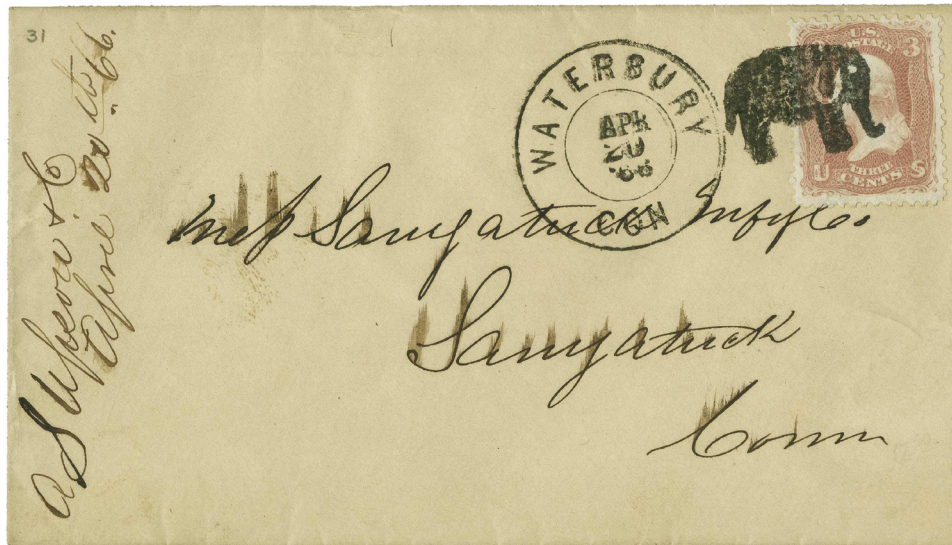 31
A S Upson & C
April 20th 66.
WATERBURY
APR
20
66
CON
U.S.
POSTAGE
3
U S
THREE
CENTS
Mess Saugatuck Mnfg Co
Saugatuck
Conn